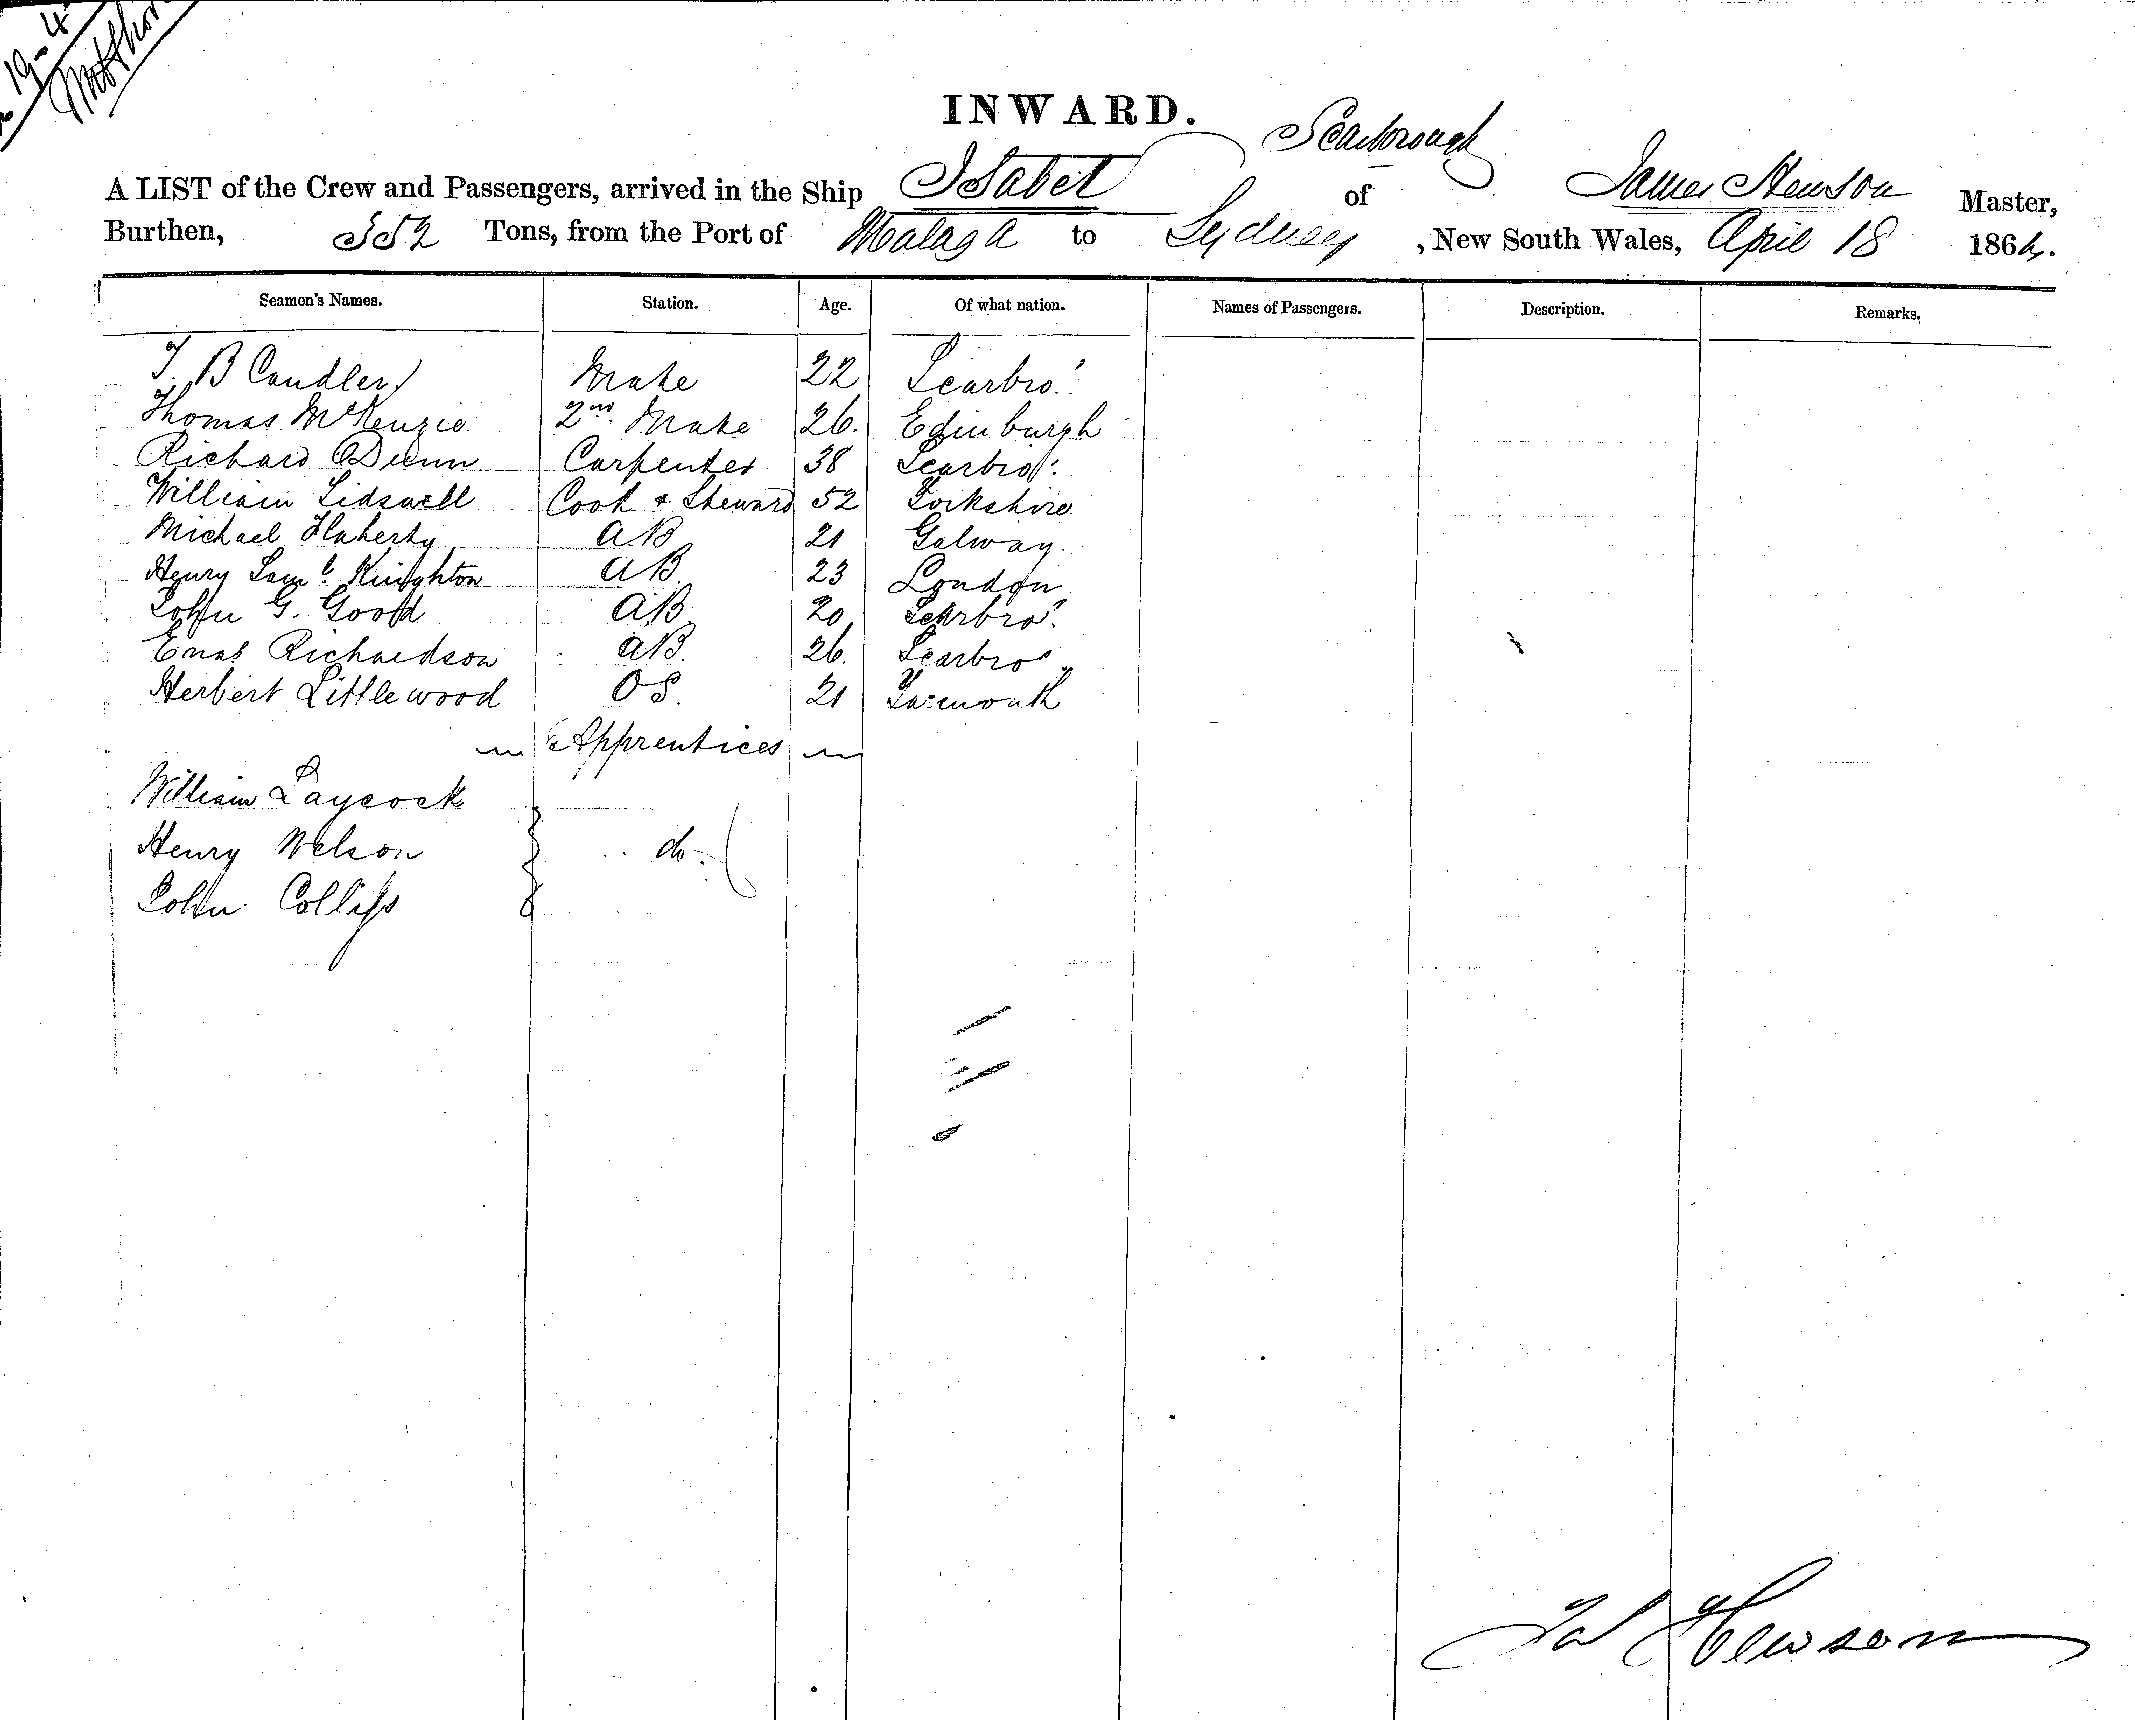 19-4
INWARD.
Scarborough
A LIST of the Crew and Passengers, arrived in the Ship Isabel of James Hewson Master,
Burthen, 352 Tons, from the Port of Malaga to Sydney, New South Wales, April 18 1864.
Seamen's Names. Station. Age. Of what nation. Names of Passengers. Description. Remarks.
T. B Candler Mate 22 Scarbro'.
Thomas McKenzie 2nd Mate 26. Edinburgh
Richard Dunn Carpenter 38 Scarbro'.
William Lidswell Cook & Steward 52 Yorkshire
Michael Flaherty AB 21 Galway.
Henry Saml. Knighton AB 23 London
John G. Goold AB 20 Scarbro'.
Enas Richardson AB. 26. Scarbro'
Herbert Littlewood OS. 21 Yarmouth
Apprentices
William Laycock
Henry Nelson do.
John
Jas Hewson